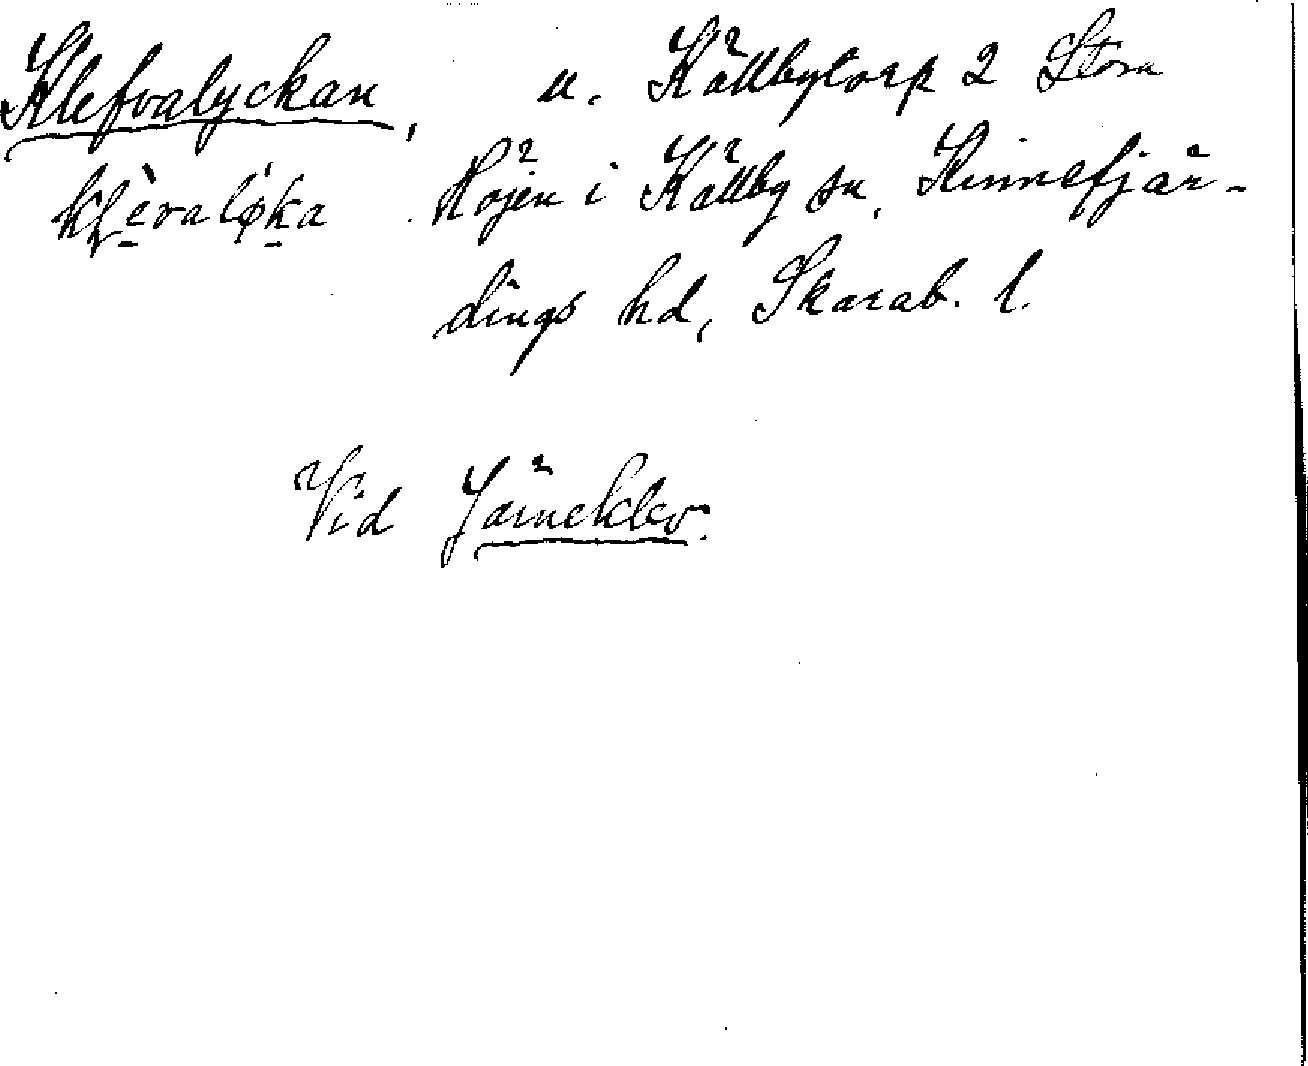 Klefvalyckan, u. Källbytorp 2 Stora
klèvalýka Höjen i Källby sn, Kinnefjär-
dings hd, Skarab. l.
Vid Järneklev.